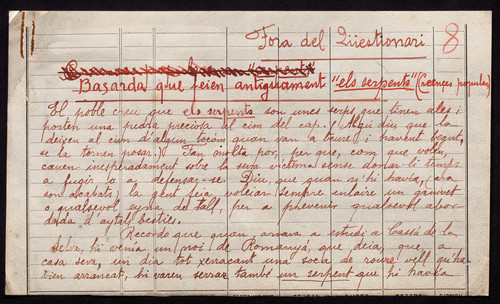 Fora del Qüestionari
8
Basarda que feien antiguament "els serpents" (Creences populars)
El poble creu que els serpents son unes serps que tinen ales i
porten una pedra preciosa al cim del cap. (Algú diu que la
deixen al cim d'algun tocom quan van a beure, i havent begut,
se la tornen posar.) Fan molta por, per que, com que volen,
cauen inesperadament sobre la seva victima sense donar-li temps
a fugir ni defensar-se. Diu, que quan n'hi havia, ara
son acabats, la gent deia voleiar sempre enlaire un ganivet
o qualsevol ayna de tall, per a prevenir qualsevol abor-
dada d'aytall bestia.
Recordo que quan, anava a estudi a Cassà de
la Selva, hi venia un noi de Romanyà, que deia, que, a
casa seva, un dia tot xerracant una soca de roure vell qu'ha-
vien arrancat, hi varen serrar també un serpent que hi havia